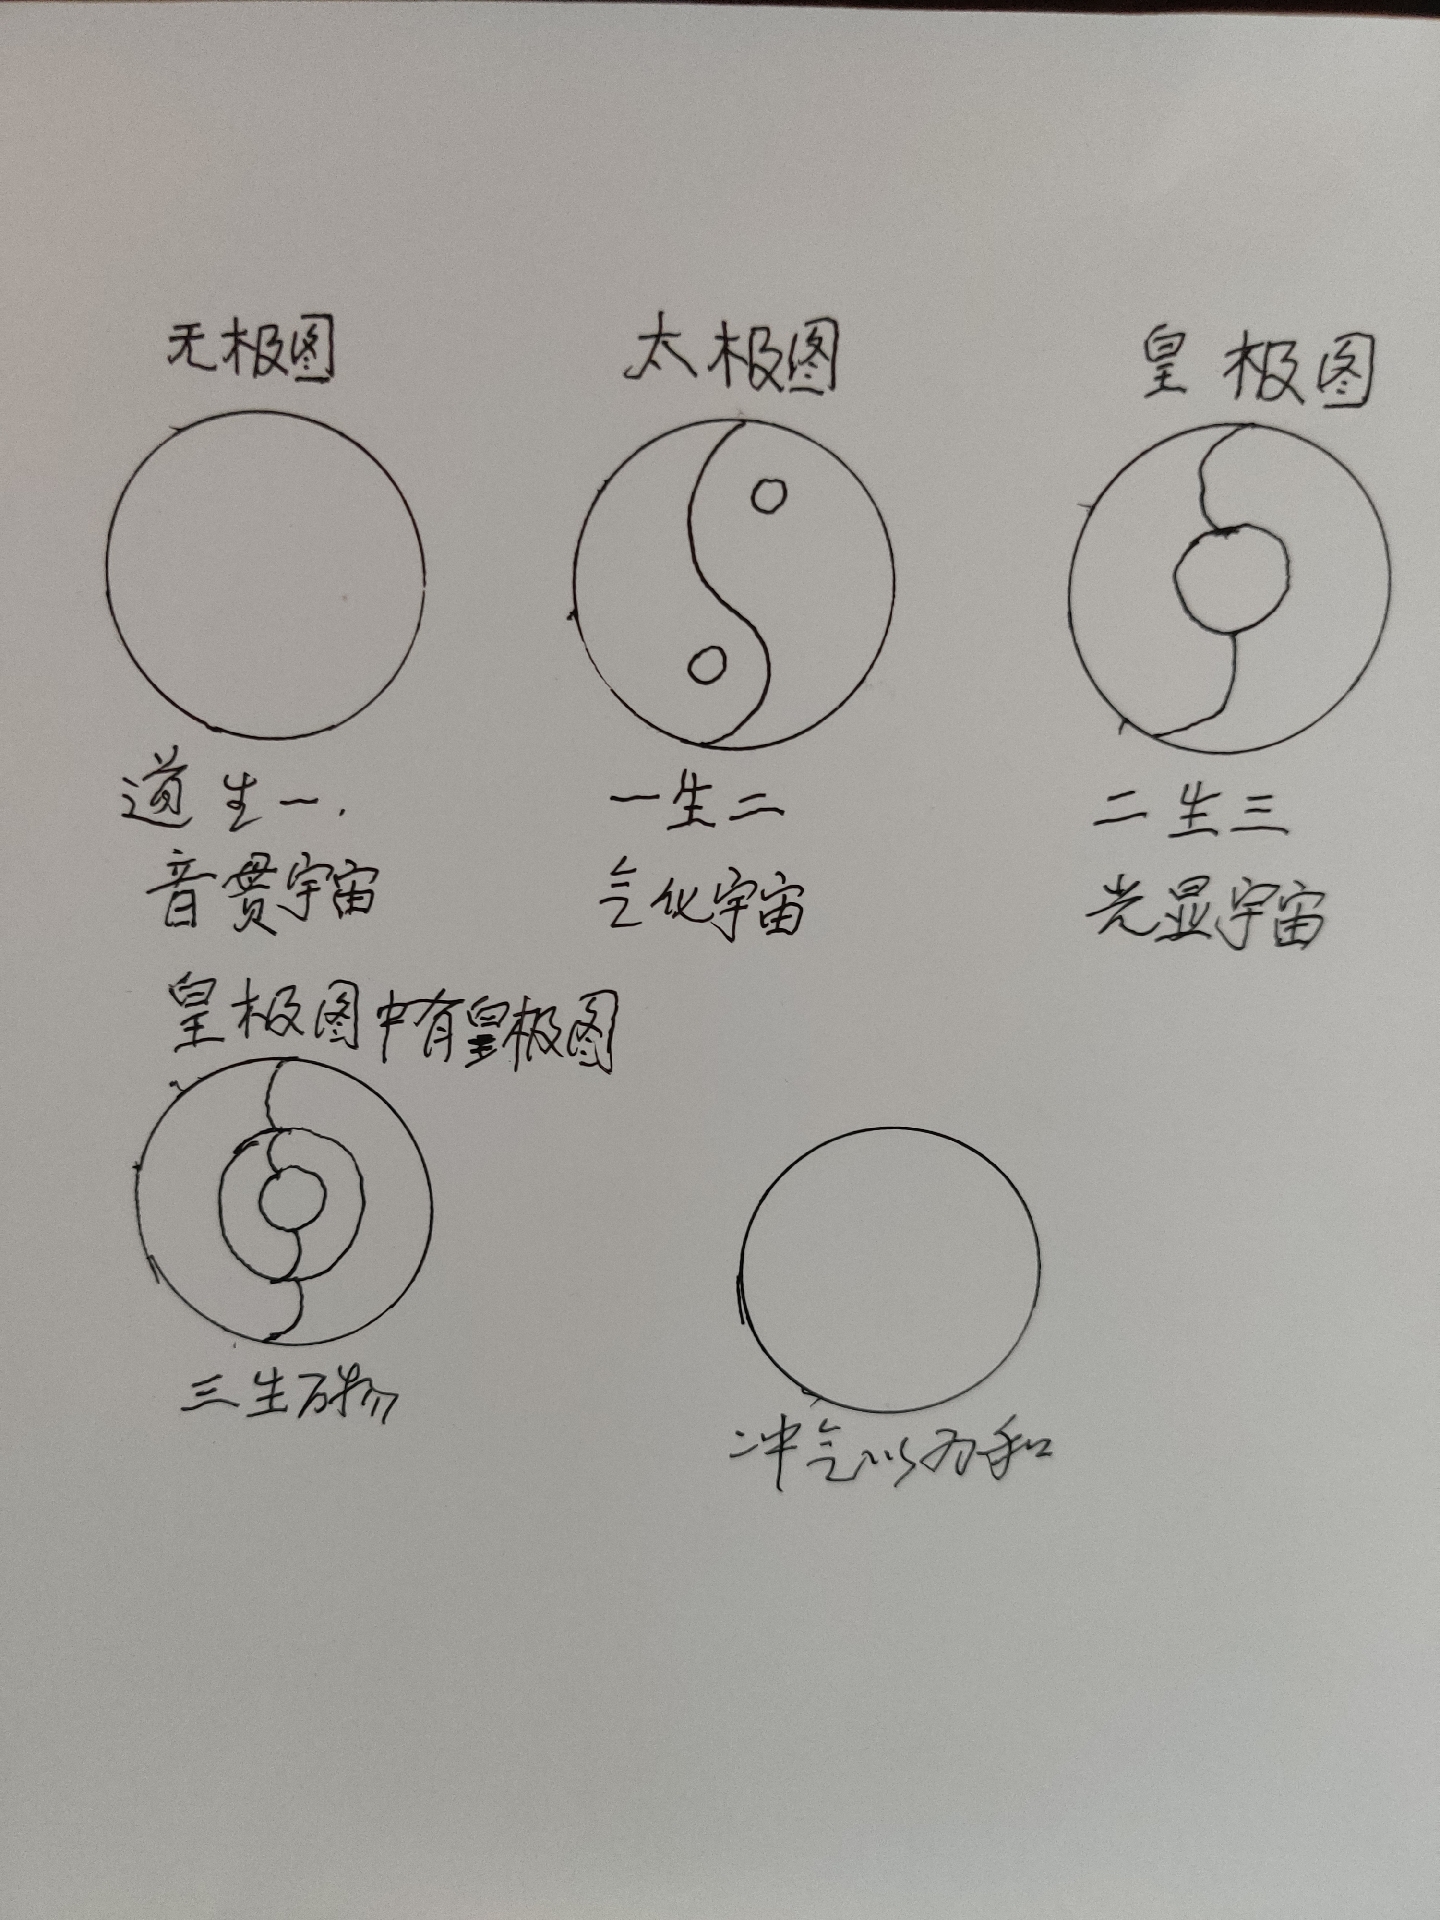 无极图
太极图
皇极图
道生一.
一生二
二生三
音贯宇宙
气化宇宙
光显宇宙
皇极图中有皇极图
三生万物
冲气以为和